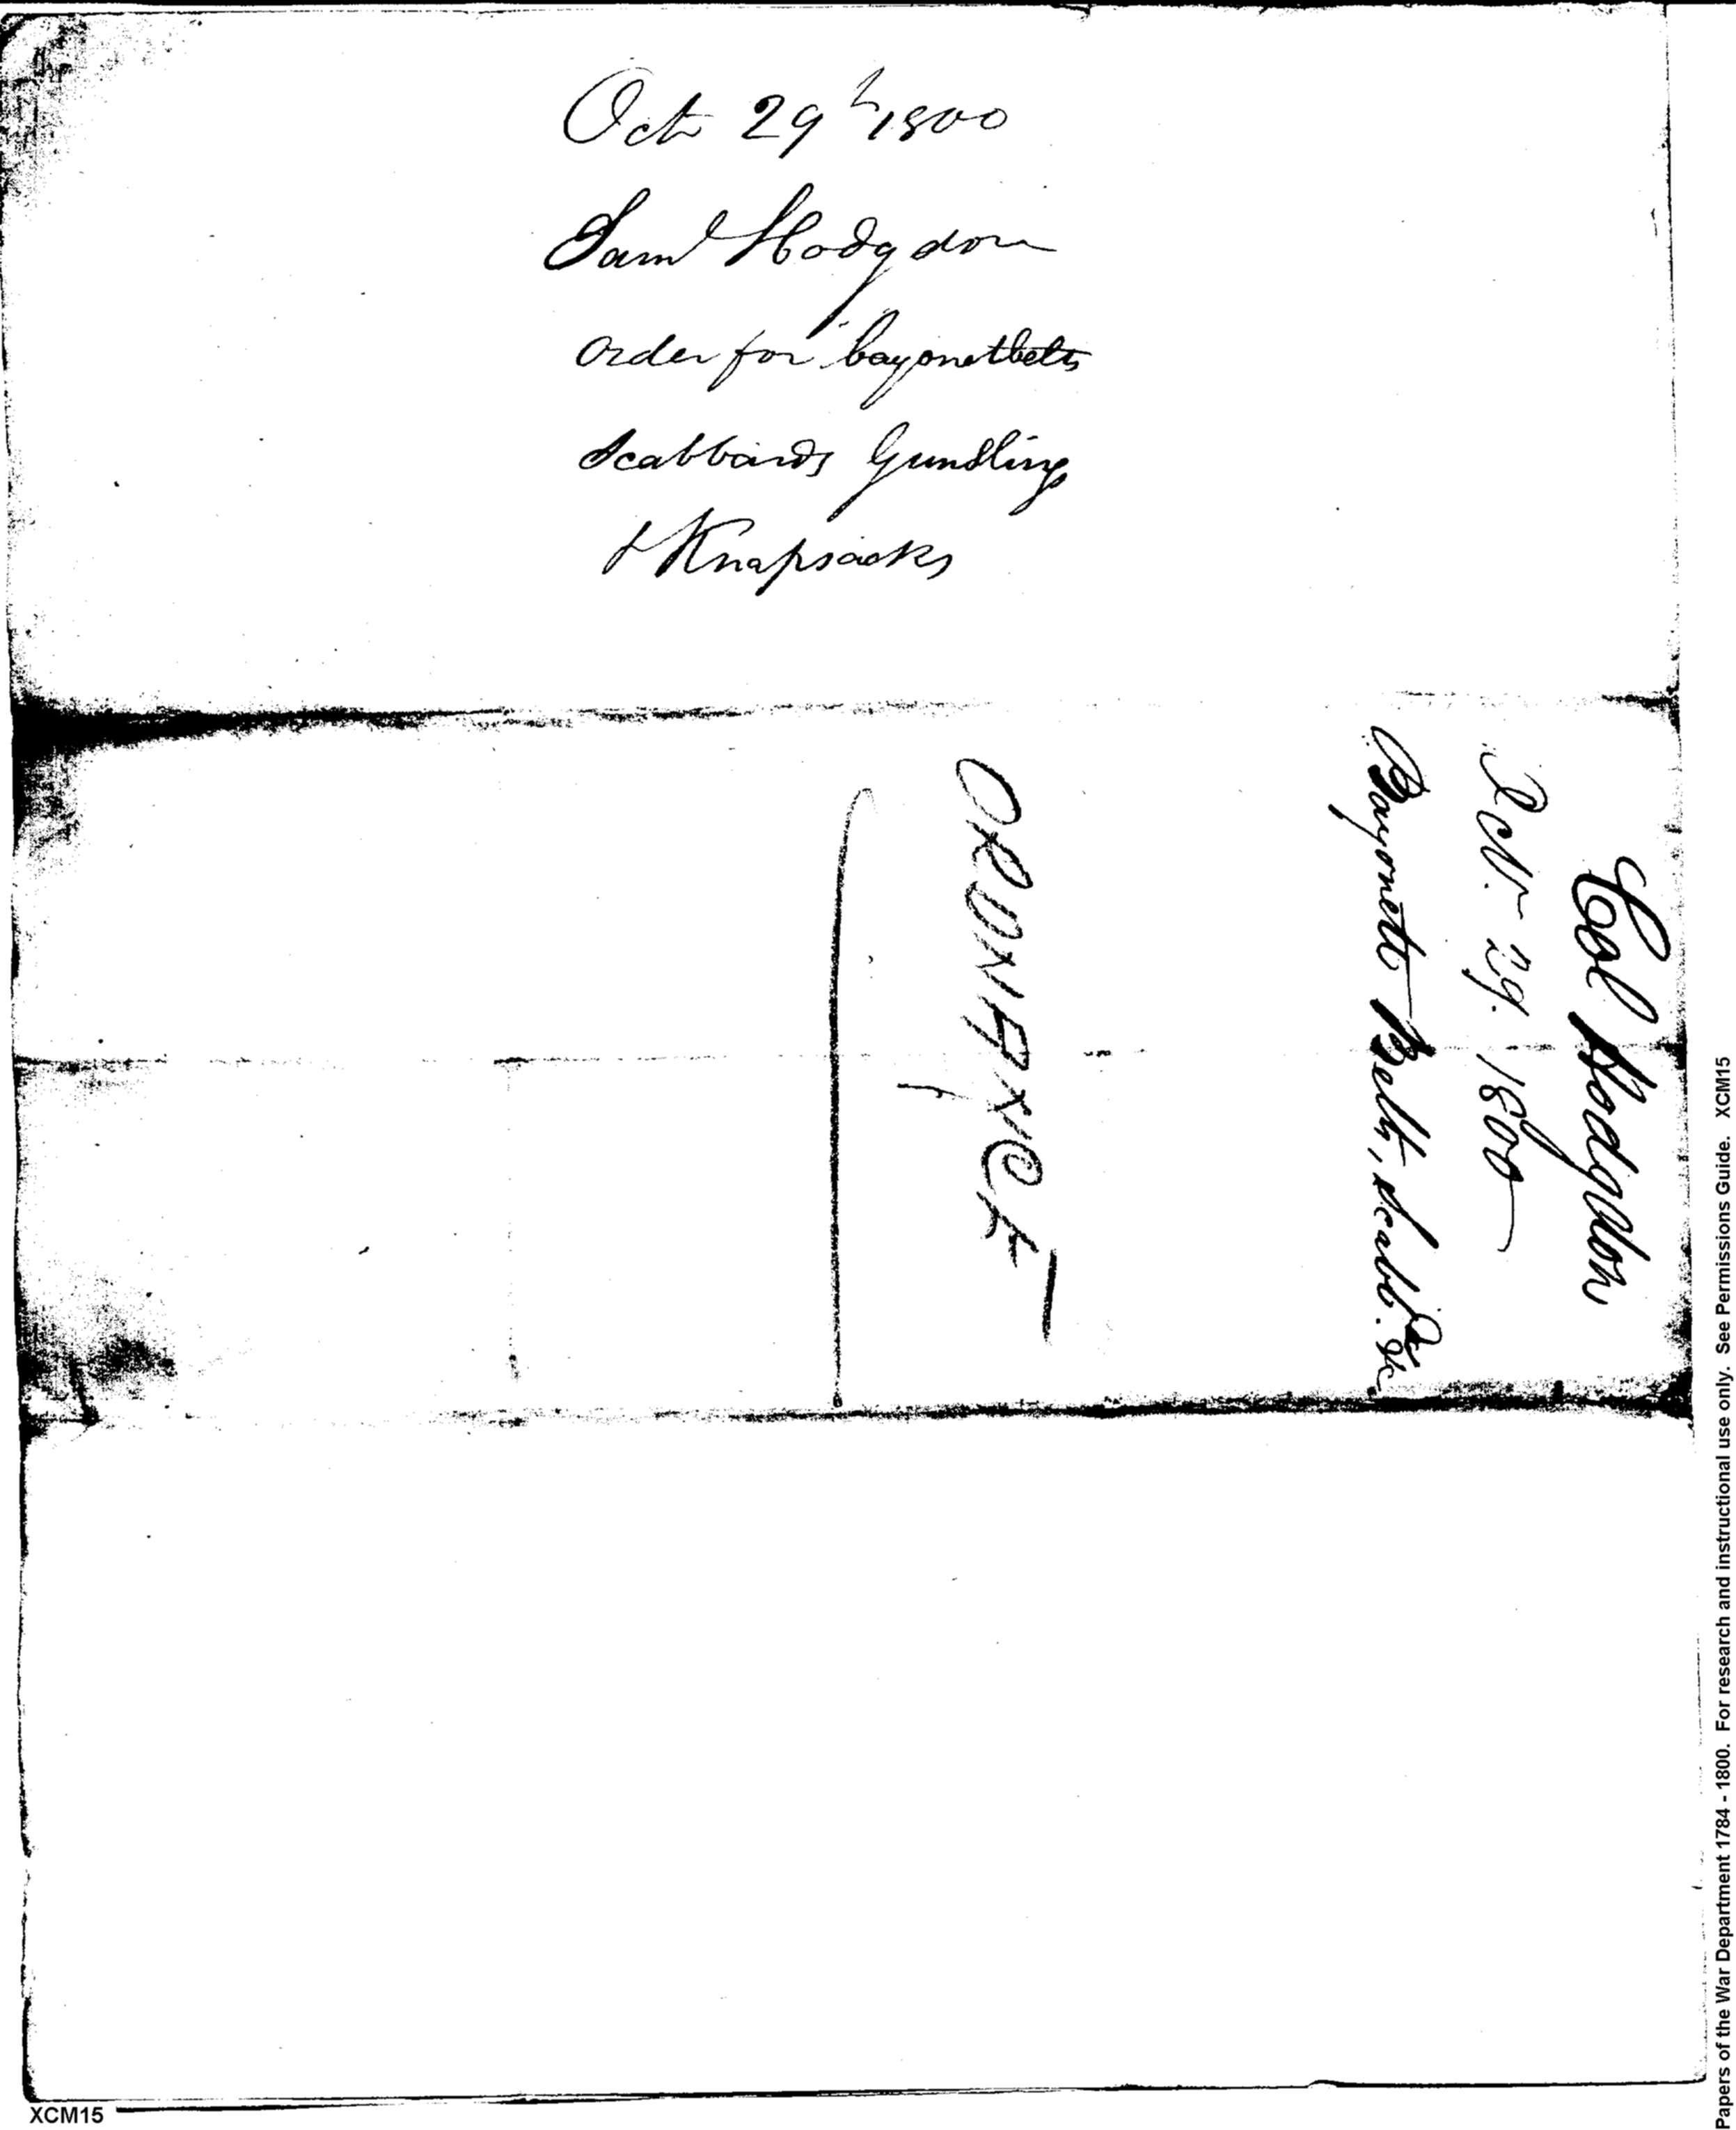 Oct 29th 1800
Saml Hodgdon
order for bayonetbelts
Scabbards Gunslings
& Knapsacks
Col Hodgdon
Oct. 29. 1800
Bayonett Belts, scabb.ds &c
ORDNANCE
Papers of the War Department 1784 - 1800. For research and instructional use only. See Permissions Guide. XCM15
XCM15